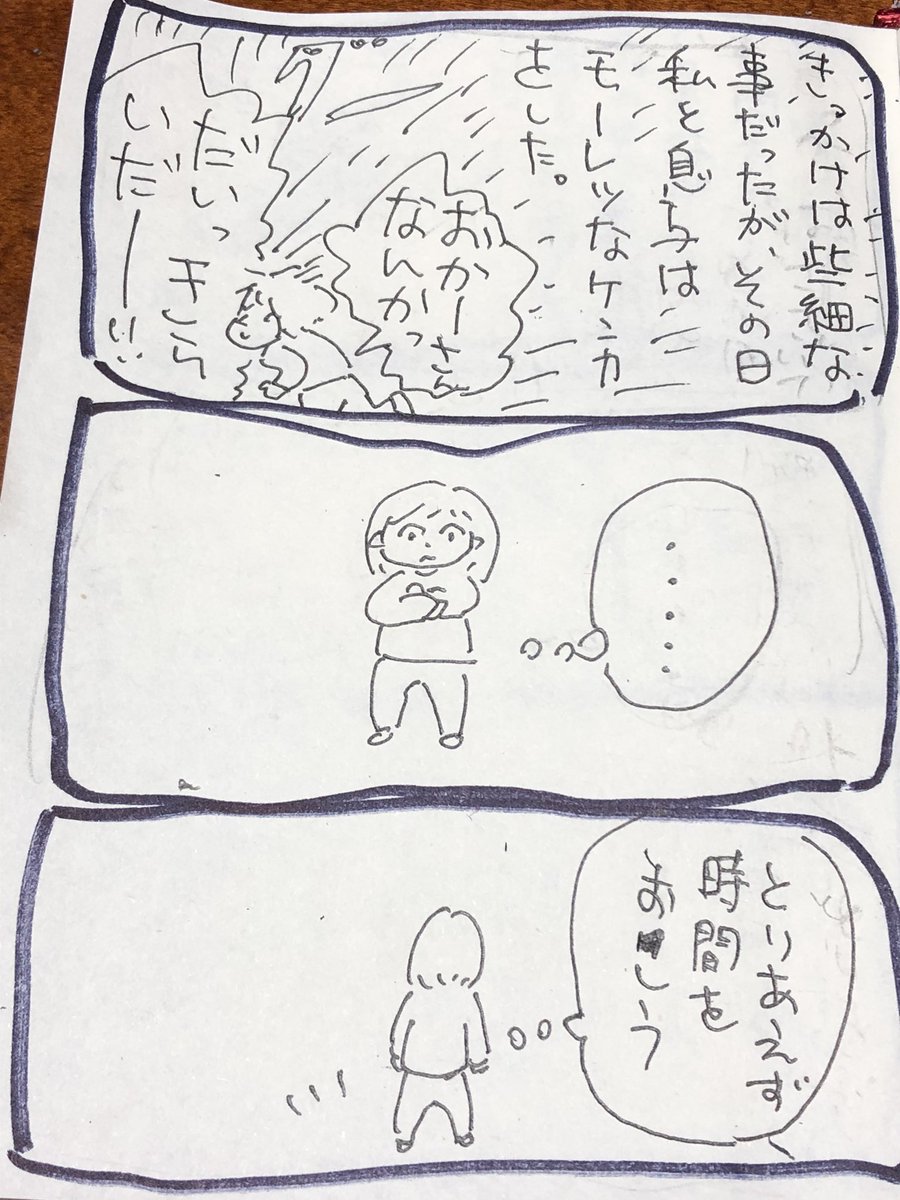 きっかけは些細な
事だったが、その日
私と息子は
モーレツなケンカ
をした。
おかーさん
なんかっ
だいっきら
いだー!!
・・・・・
とりあえず
時間を
おこう